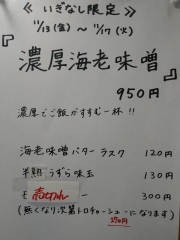 ≪ いぎなし限定 ≫
11/13 (金) ～ 11/17 (火)
『濃厚海老味噌』
950円
濃厚でご飯がすすむ一杯!!
海老味噌バターラスク 120円
半熟うずら味玉 130円
売切れ 300円
(無くなり次第トロチャーシューになります)
270円